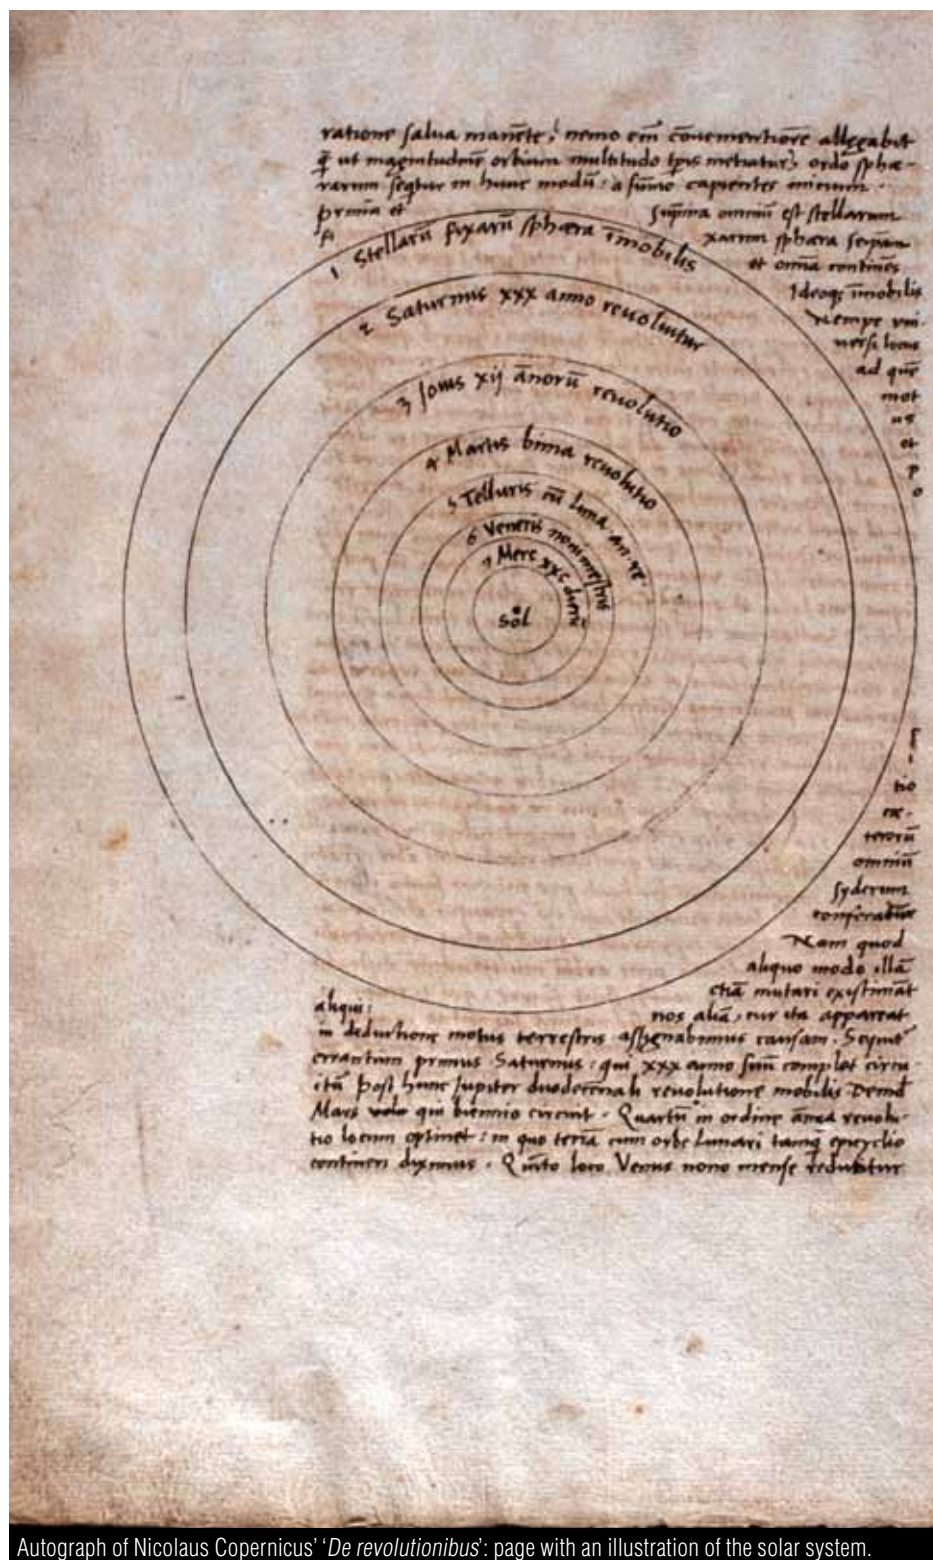 ratione salua manēte, nemo em̄ cōuenientiorē allegabit
q̄ ut magnitudinē orbium multitudo tp̄is metiatur, ordo sphæ-
rarum seqtur in hunc modū: a sum̄o capientes initium.
prima et sup̄ma omniū est stellarum
fi xarum sphæra seip̄am
et om̄ia continēs
Ideoqȝ īmobilis
Nempe uni
uersi locus
ad quē
mot
us
et
p
o
1 Stellarū fixarū sphæra īmobilis
2 Saturnus xxx anno reuoluitur
3 Jouis xij ānorū reuolutio
4 Martis bima reuolutio
5 Telluris cū luna an. re.
6 Veneris nonimestris
7 Merc xxc dierū
Sol
tio
ce-
terorū
omniū
syderum
conferatur
Nam quod
aliquo modo illā
etiā mutari existimāt
aliqui: nos aliā, cur ita appareat
in deductione motus terrestris assignabimus causam. Sequit̄
errantium primus Saturnus: qui xxx anno suū complet circu-
itū Post hunc Jupiter duodecēnali reuolutione mobilis Deind̄
Mars uolo qui biennio circuit. Quartū in ordine ānua reuolu-
tio locum optinet: in quo terrā cum orbe lunari tamq̄ epicyclio
contineri diximus. Quīto loco Venus nono mense reducitur
Autograph of Nicolaus Copernicus’ ‘De revolutionibus’: page with an illustration of the solar system.